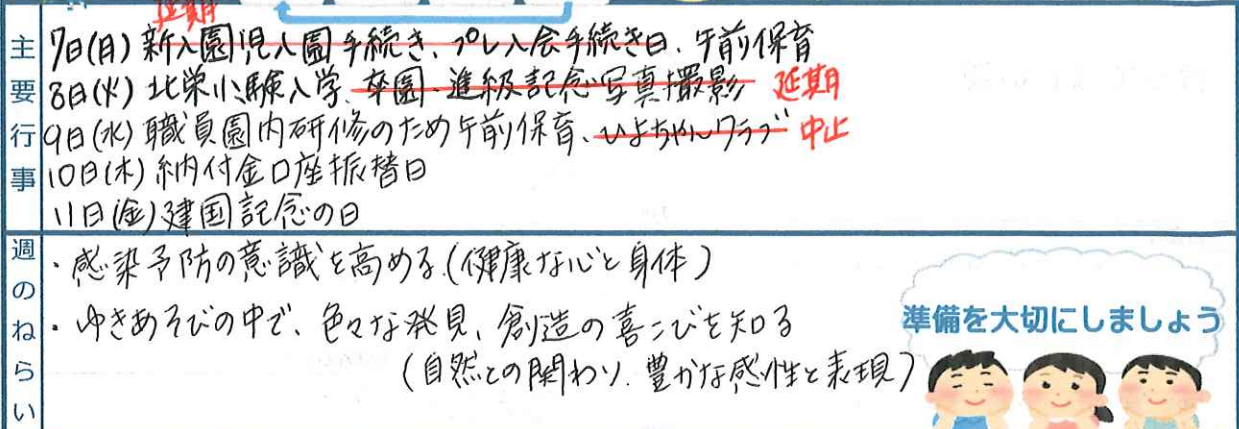 延期
主要行事
7日(月) 新入園児入園手続き、プレ入会手続き日、午前保育
8日(火) 北栄小体験入学、卒園・進級記念写真撮影 延期
9日(水) 職員園内研修のため午前保育、ひよちゃんクラブ 中止
10日(木) 納付金口座振替日
11日(金) 建国記念の日
週のねらい
・感染予防の意識を高める。(健康な心と身体)
・ゆきあそびの中で、色々な発見、創造の喜こびを知る
(自然との関わり、豊かな感性と表現)
準備を大切にしましょう